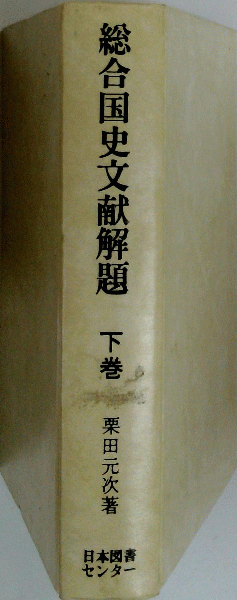 総合国史文献解題
下巻
栗田元次著
日本図書
センター